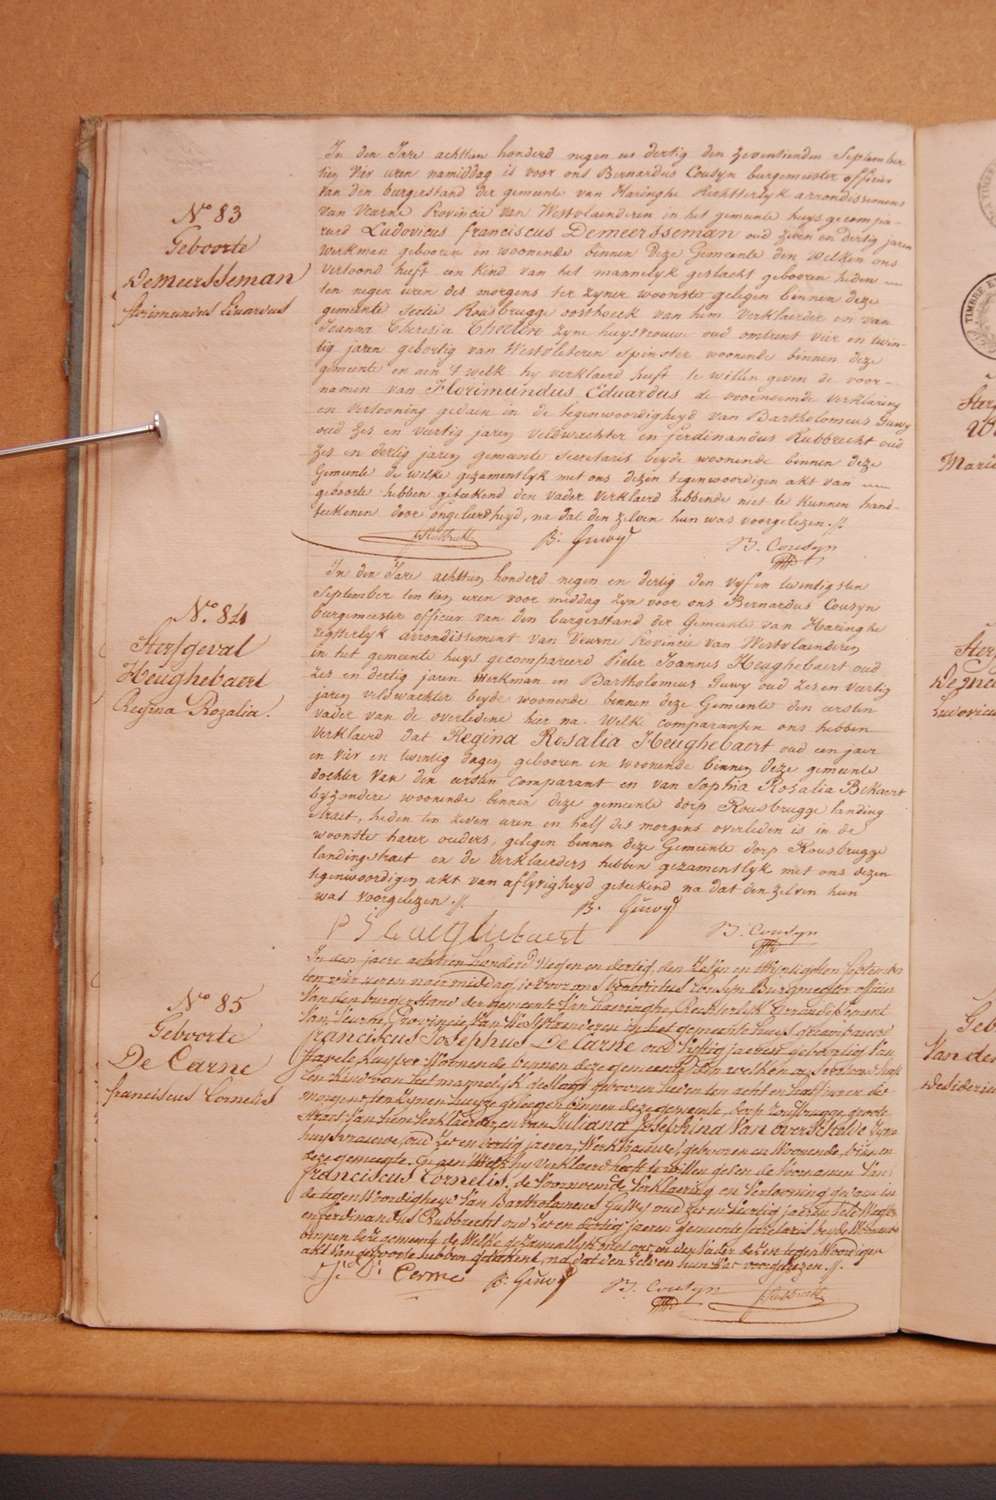 N° 83
Geboorte
Demeersseman
florimundus Eduardus
In den Jare achttien honderd negen en dertig den zeventienden September
ten vier uren namiddag is voor ons Bernardus Cousyn burgemeester officier
van den burgerstand der gemeente van Haringhe Rechterlyk arrondissement
van Veurne Provincie van Westvlaenderen in het gemeente huys gecompa-
reerd Ludovicus franciscus Demeersseman oud zeven en dertig jaren
werkman geboren en woonende binnen deze Gemeente den welken ons
vertoond heeft een kind van het mannelyk geslacht geboren heden
ten negen uren des morgens ter zyner woonste gelegen binnen deze
gemeente sectie Rousbrugge oosthoek van hem verklaerder en van
Joanna Theresia zyne huysvrouwe oud omtrent vier en twin-
tig jaren geboortig van Westvleteren spinster woonende binnen deze
gemeente en aen 't welk hy verklaerd heeft te willen geven de voor-
namen van Florimundus Eduardus de voornoemde verklaring
en vertooning gedaen in de tegenwoordigheyd van Bartholomeus Guwy
oud zes en veertig jaren veldwachter en ferdinandus Rubbrecht oud
zes en dertig jaren gemeente Secretaris beyde woonende binnen deze
Gemeente de welke gezamentlyk met ons dezen tegenwoordigen akt van
geboorte hebben geteekend den vader verklaerd hebbende niet te kunnen hand-
teekenen door ongeleerdheyd, na dat den zelven hun was voorgelezen.
f Rubbrecht B. Guwy B. Cousyn
N° 84
Sterfgeval
Heughebaert
Regina Rozalia.
In den Jare achttien honderd negen en dertig den vyf en twintigsten
September ten tien uren voor middag zyn voor ons Bernardus Cousyn
burgemeester officier van den burgerstand der Gemeente van Haringhe
regterlyk arrondissement van Veurne Provincie van Westvlaenderen
in het gemeente huys gecompareerd Pieter Joannes Heughebaert oud
zes en dertig jaren werkman en Bartholomeus Guwy oud zes en veertig
jaren veldwachter beyde woonende binnen deze Gemeente den eersten
vader van de overledene hier na. Welk comparanten ons hebben
verklaerd dat Regina Rosalia Heughebaert oud een jaer
en vier en twintig dagen geboren en woonende binnen deze gemeente
dochter van den eersten comparant en van Sophia Rosalia Bekaert
byzondere woonende binnen deze gemeente dorp Rousbrugge landing
straet, heden ten zeven uren en half des morgens overleden is in de
woonste harer ouders, gelegen binnen deze Gemeente dorp Rousbrugge
landingstraet en de verklaerders hebben gezamentlyk met ons dezen
tegenwoordigen akt van aflyvigheyd geteekend na dat den zelven hun
was voorgelezen.
B. Guwy
P J Heughebaert B. Cousyn
N° 85
Geboorte
De Carne
franciscus Cornelis
In den jaere achtien honderd Negen en dertig, den September
ten vier ueren naermiddag, is voor ons Bernardus Cousyn Burgmeester officier
Van den burgerstand der Gemeente Van Haeringhe, Regterlyk arrondissement
Van Veurne, Provincie Van Westvlaenderen in het gemeente huys gecompareerd
franciscus Josephus De Carne oud Vyftig jaeren geboortig Van
Woonende binnen deze gemeente, den welken ons vertoond heeft
een kind van het mannelyk geslagt geboren heden ten acht en half uren des
morgens ten zynen huyze gelegen binnen deze gemeente, dorp Rousbrugge groote
straet Van hem Verklaerder, en van Juliana Josephina Van overschelde Zyne
huysvrauwe, oud Zes en dertig jaeren, geboren en Woonende, binnen
deze gemeente. En aen Welk hy Verklaerd heeft te willen geven de Voornamen Van
franciscus Cornelis. de Voornoemde Verklaering en Vertooning gedaen in
de tegenWoordigheyd Van Bartholomeus Guwy oud Zes en Veertig jaeren
en ferdinandus Rubbrecht oud Zes en dertig jaeren gemeente secretaris beyde Woonende
binnen deze gemeente, de Welke gezamentlyk met ons en den Vader dezen tegenWoordigen
akt Van geboorte hebben geteekend, na dat den Zelven hun Was voorgelezen.
Carne B. Guwy B. Cousyn f Rubbrecht
TIMBRE
Sterf
Marie
Sterf
Ludovicus
Geb
Van de
Desiderius